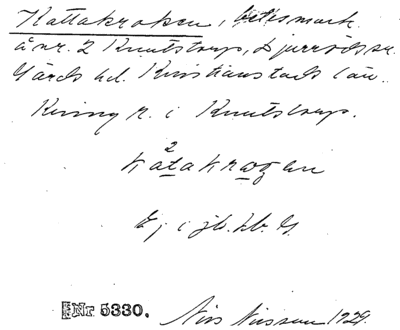 Kattakroken, betesmark
å nr. 2 Knutstorp, Djurröds sn.
Gärds hd. Kristianstads län.
Kring r. i Knutstorp.
2
katakrogen
Ej i jb. hb. G.
Nr 5330. Nils Nilsson 1929.